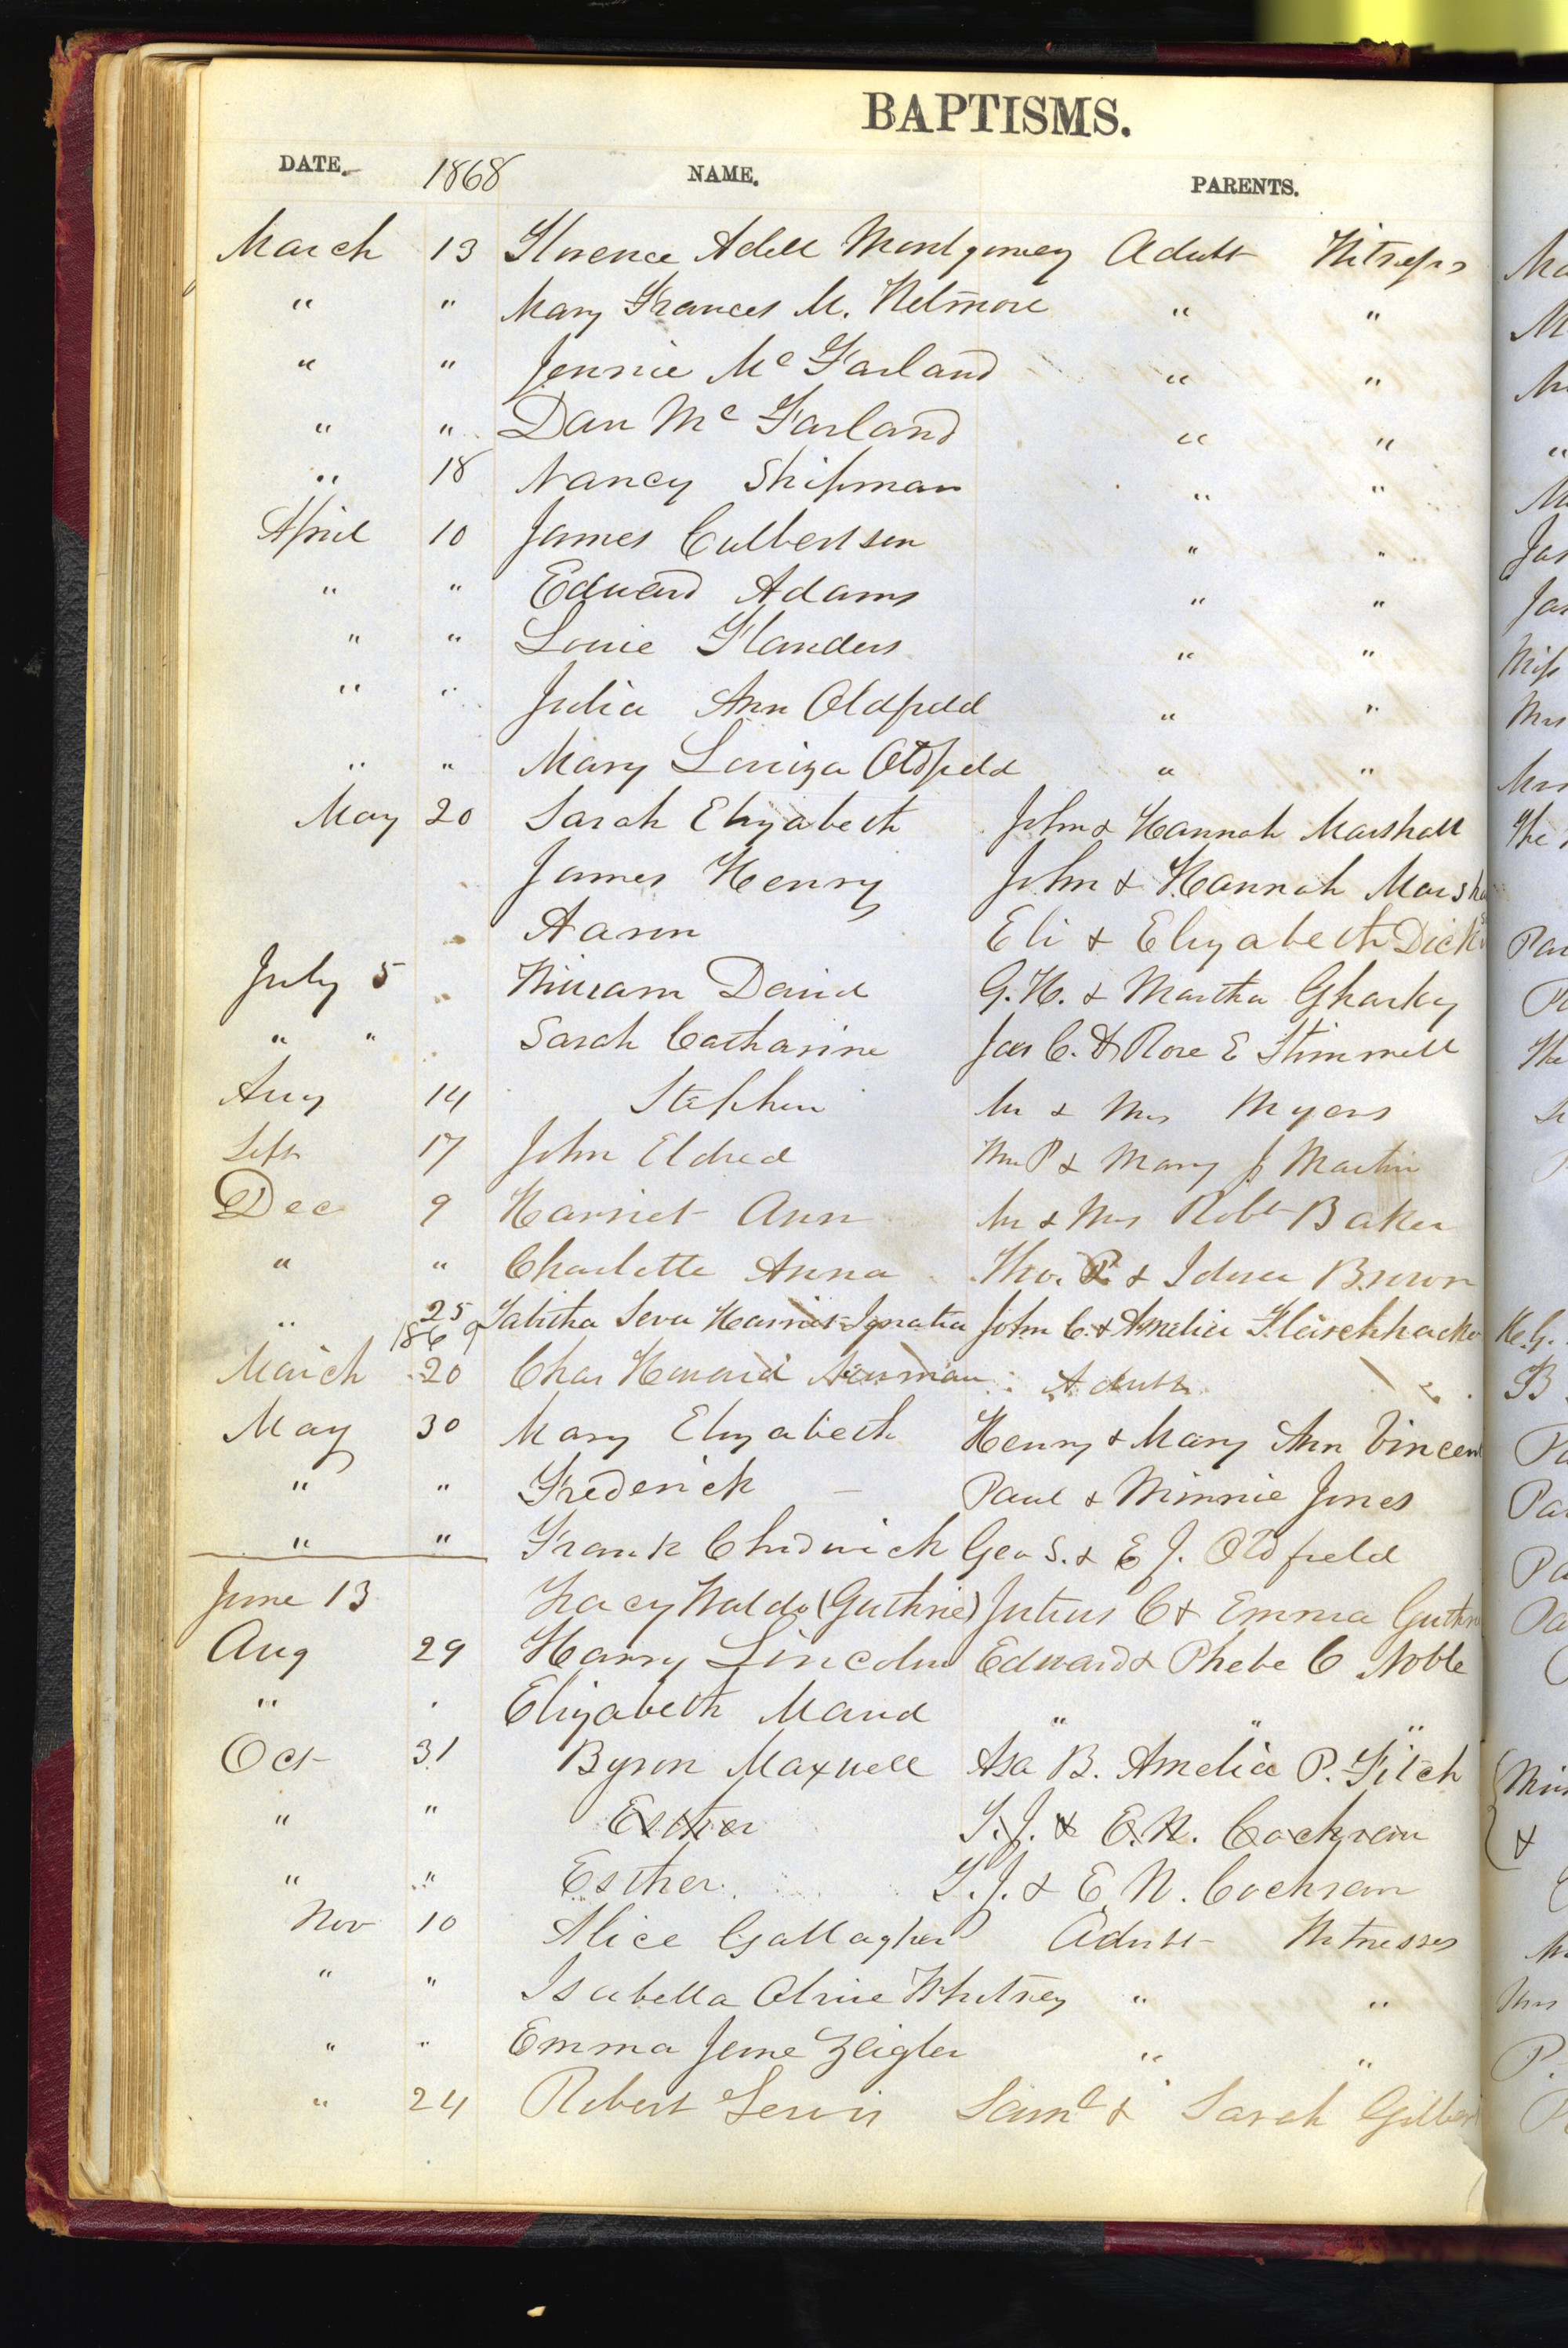 BAPTISMS.
DATE. 1868 NAME. PARENTS.
March 13 Florence Adell Montgomery Adult Witnesses
" " Mary Frances M. Wetmore " "
" " Jennie Mc Farland " "
" " Dan Mc Farland " "
" 18 Nancy Shipman " "
April 10 James Culbertson " "
" " Edward Adams " "
" " Louie Flanders " "
" " Julia Ann Oldfield " "
" " Mary Louiza Oldfield " "
May 20 Sarah Elizabeth John & Hannah Marshall
James Henry John & Hannah Marsha
Aaron Eli & Elizabeth Dick
July 5 William David G. H. & Martha Gharky
" " Sarah Catharine Jas C. & Rose E Stimmell
Aug 14 Stephen Mr & Mrs Myers
Sept 17 John Eldred Wm P & Mary J Martin
Dec 9 Harriet Ann Mr & Mrs Robt Baker
" " Charlotte Anna Tho. & Brown
" 25 Tabitha Harriet Ignatia John C. & Amelia
1869
March 20 Chas Howard Newman Adult
May 30 Mary Elizabeth Henry & Mary Ann Vincen
" " Frederick Paul & Minnie Jones
" " Frank Chidwick Geo S. & E J. Oldfield
June 13 Lacy Waldo (Guthrie) Julius C & Emma Guthr
Aug 29 Harry Lincoln Edward & Phebe C Noble
" " Elizabeth Maud " " "
Oct 31 Byron Maxwell Asa B. Amelia P. Fitch
" " Esther T. J. & E. N. Cochran
" " Esther. T. J. & E N. Cochran
Nov 10 Alice Gallagher Adult Witnesses
" " Isabella Olive Whitney " "
" " Emma Jene Zeigler " "
" 24 Robert Lewis Saml & Sarah Gilber